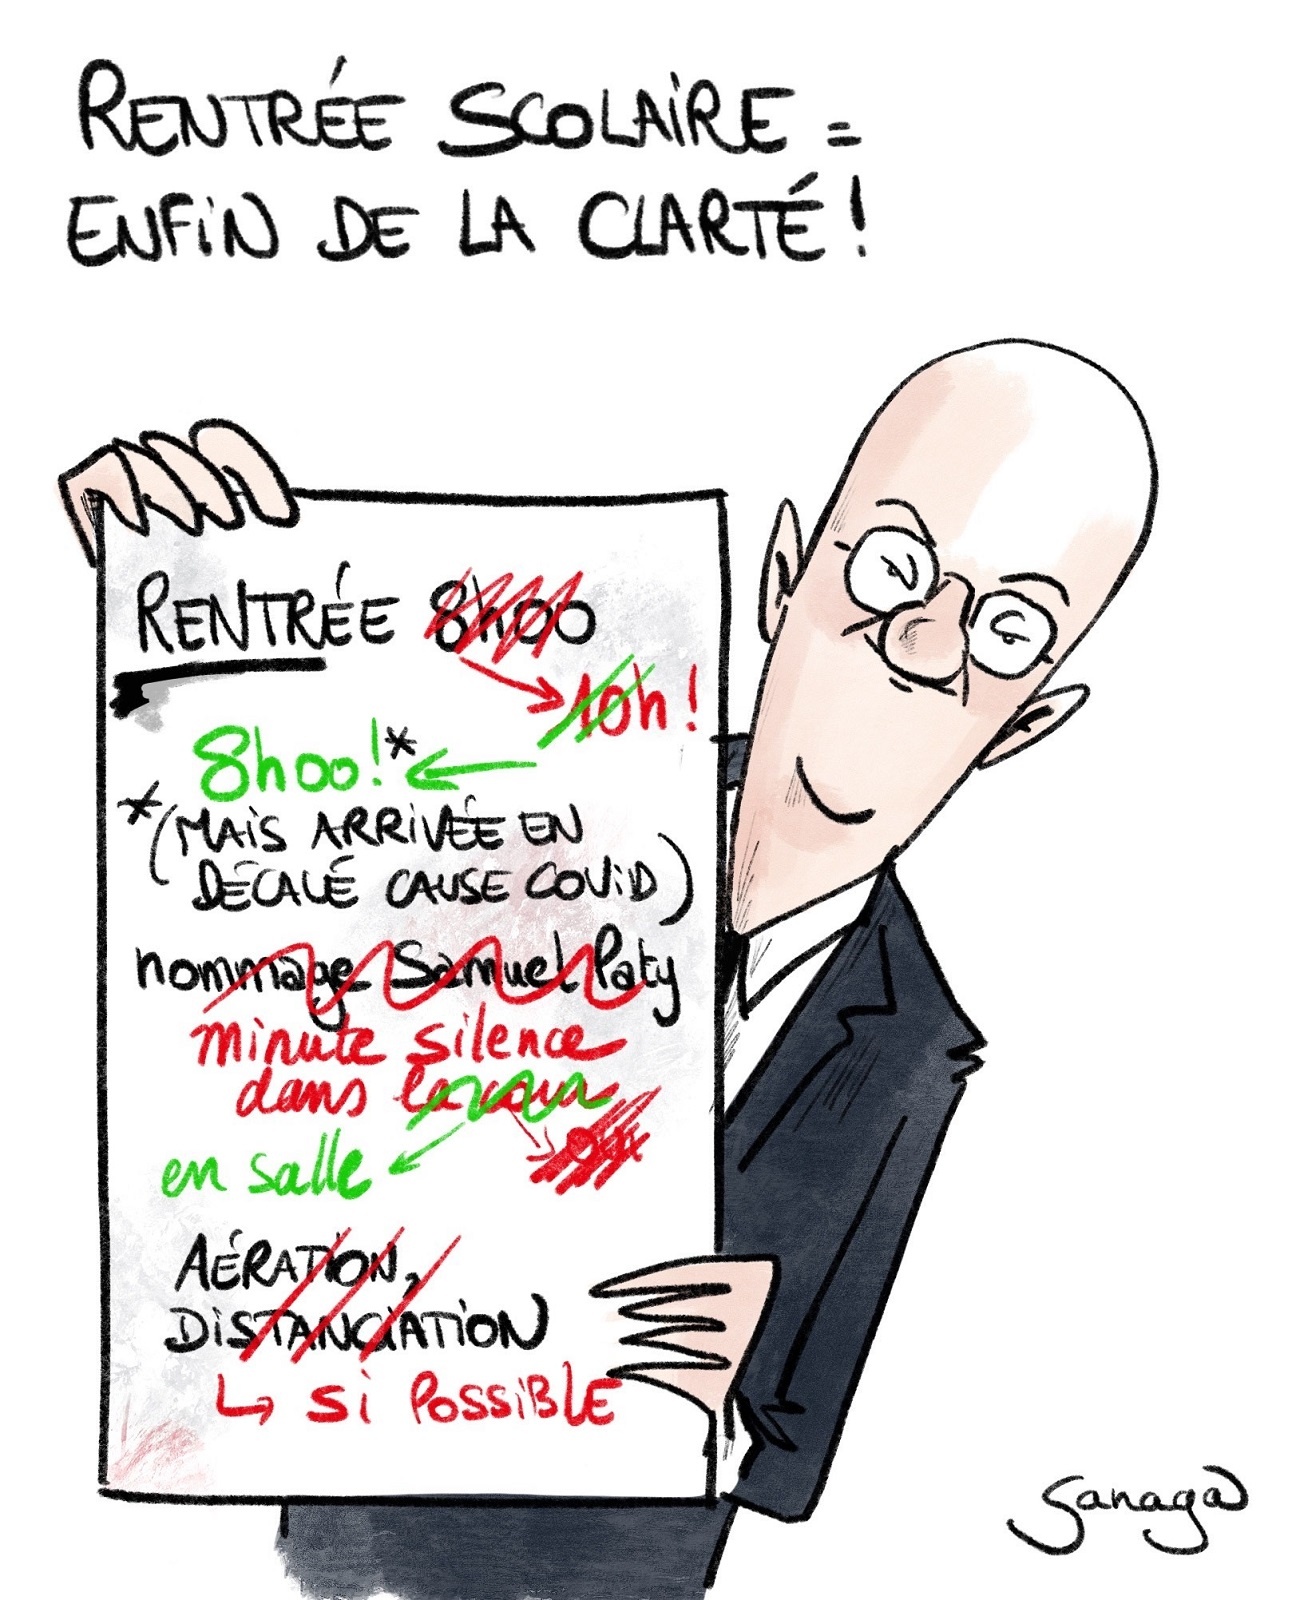 RENTRÉE SCOLAIRE =
ENFIN DE LA CLARTÉ !
RENTRÉE 8h00
10h !
8h00!*
*(MAIS ARRIVÉE EN
DÉCALÉ CAUSE COVID)
hommage Samuel Paty
minute silence
dans la cour
en salle
AÉRATION,
DISTANCIATION
↳ SI POSSIBLE
Sanaga